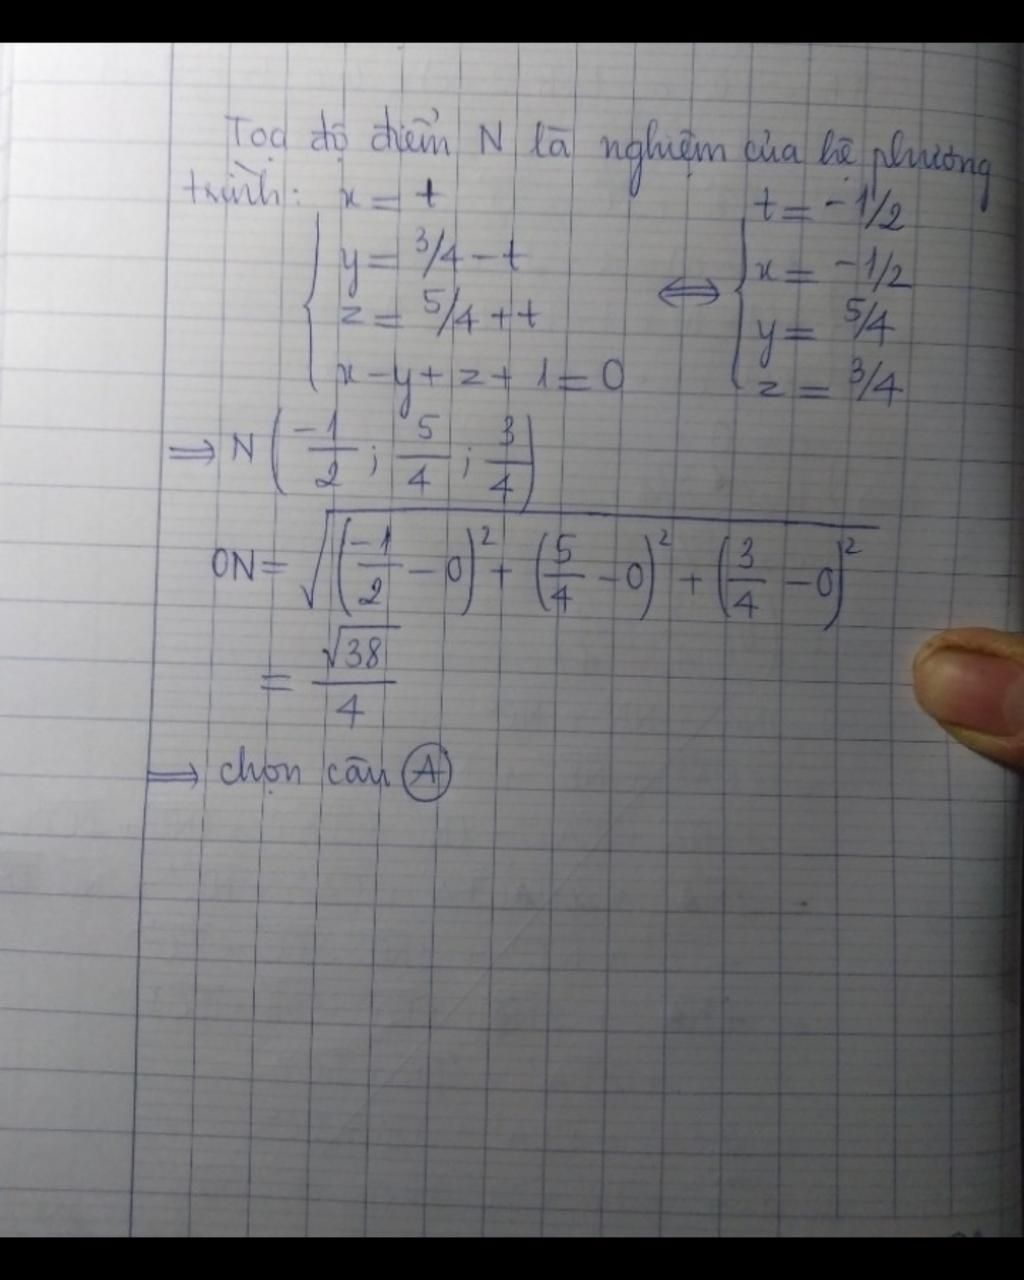 Toạ độ điểm N là nghiệm của hệ phương
trình: x = t
y = 3/4 - t
z = 5/4 + t
x - y + z + 1 = 0
⇔
t = -1/2
x = -1/2
y = 5/4
z = 3/4
⇒ N (-1/2 ; 5/4 ; 3/4)
ON = √((-1/2 - 0)² + (5/4 - 0)² + (3/4 - 0)²)
= √38/4
⇒ chọn câu A